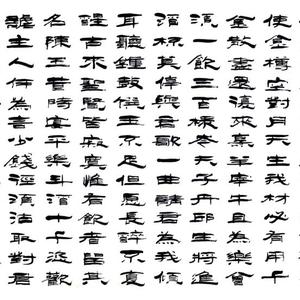 使金樽空對月天生我材必有用千
金散盡還復來烹羊宰牛且為樂會
須一飲三百杯岑夫子丹丘生將進
酒杯莫停與君歌一曲請君為我傾
耳聽鐘鼓饌玉不足但願長醉不復
醒古來聖賢皆寂寞惟有飲者留其
名陳王昔時宴平樂斗酒十千恣歡
謔主人何為言少錢徑須沽取對君